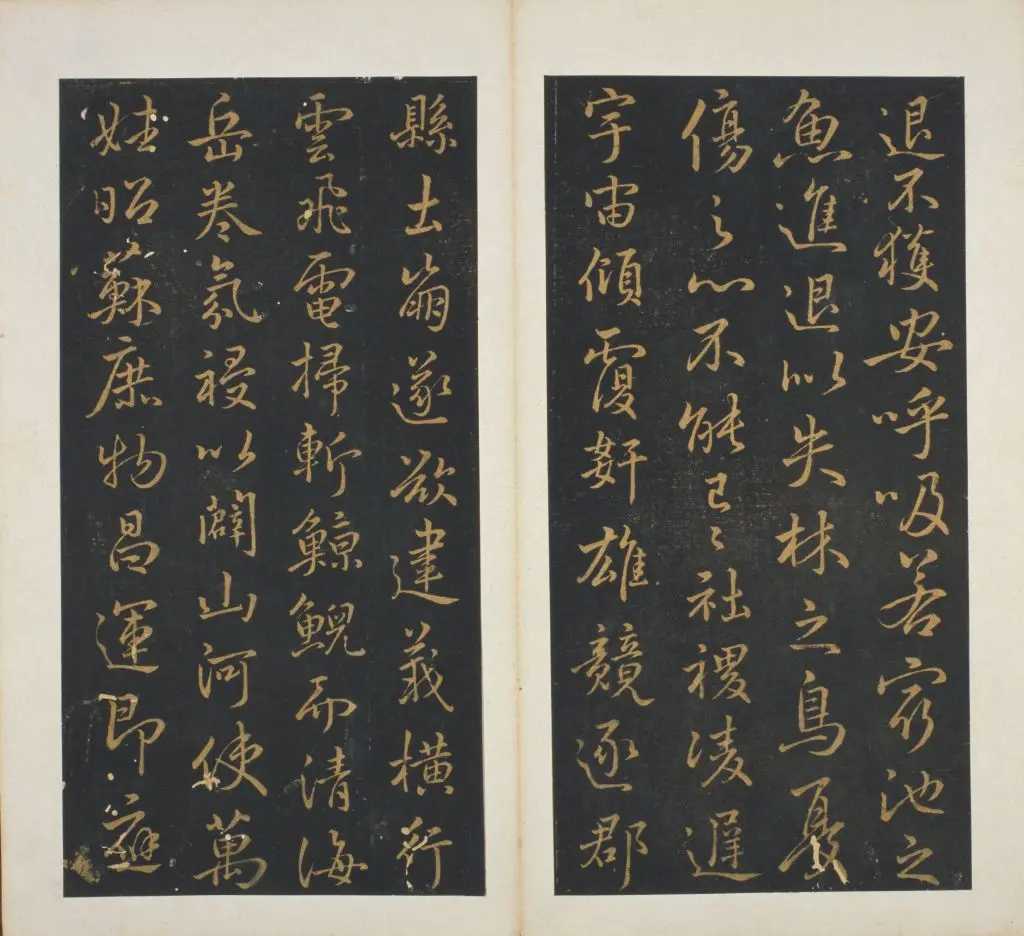 退不獲安呼吸若窮池之
魚進退以失林之鳥憂
傷之心不能已〻社禝凌遲
宇宙傾覆姧雄競逐郡
縣土崩遂欲建義橫行
雲飛電掃斬鯨鯢而清海
岳卷氛祲以闢山河使萬
姓昭蘇庶物昌運即